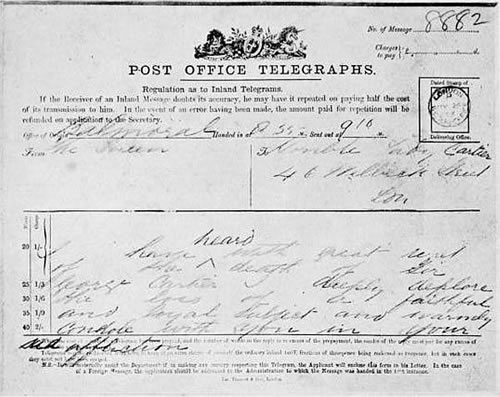 No. of Message 8882
Charges to pay £ s. d.
POST OFFICE TELEGRAPHS.
Dated Stamp of
Delivering Office.
Regulation as to Inland Telegrams.
If the Receiver of an Inland Message doubts its accuracy, he may have it repeated on paying half the cost
of its transmission to him. In the event of an error having been made, the amount paid for repetition will be
refunded on application to the Secretary.
Office of Balmoral Handed in at Sent out at 9 10
From The Queen To Lady Cartier
46 Welbeck Street
Lon
heard
20 1/- I have with great
of the death of Sir
25 1/3 George Cartier I deeply deplore
30 1/6 the loss of so faithful
35 1/9 and loyal subject and warmly
40 2/- condole with you in your
sad affliction